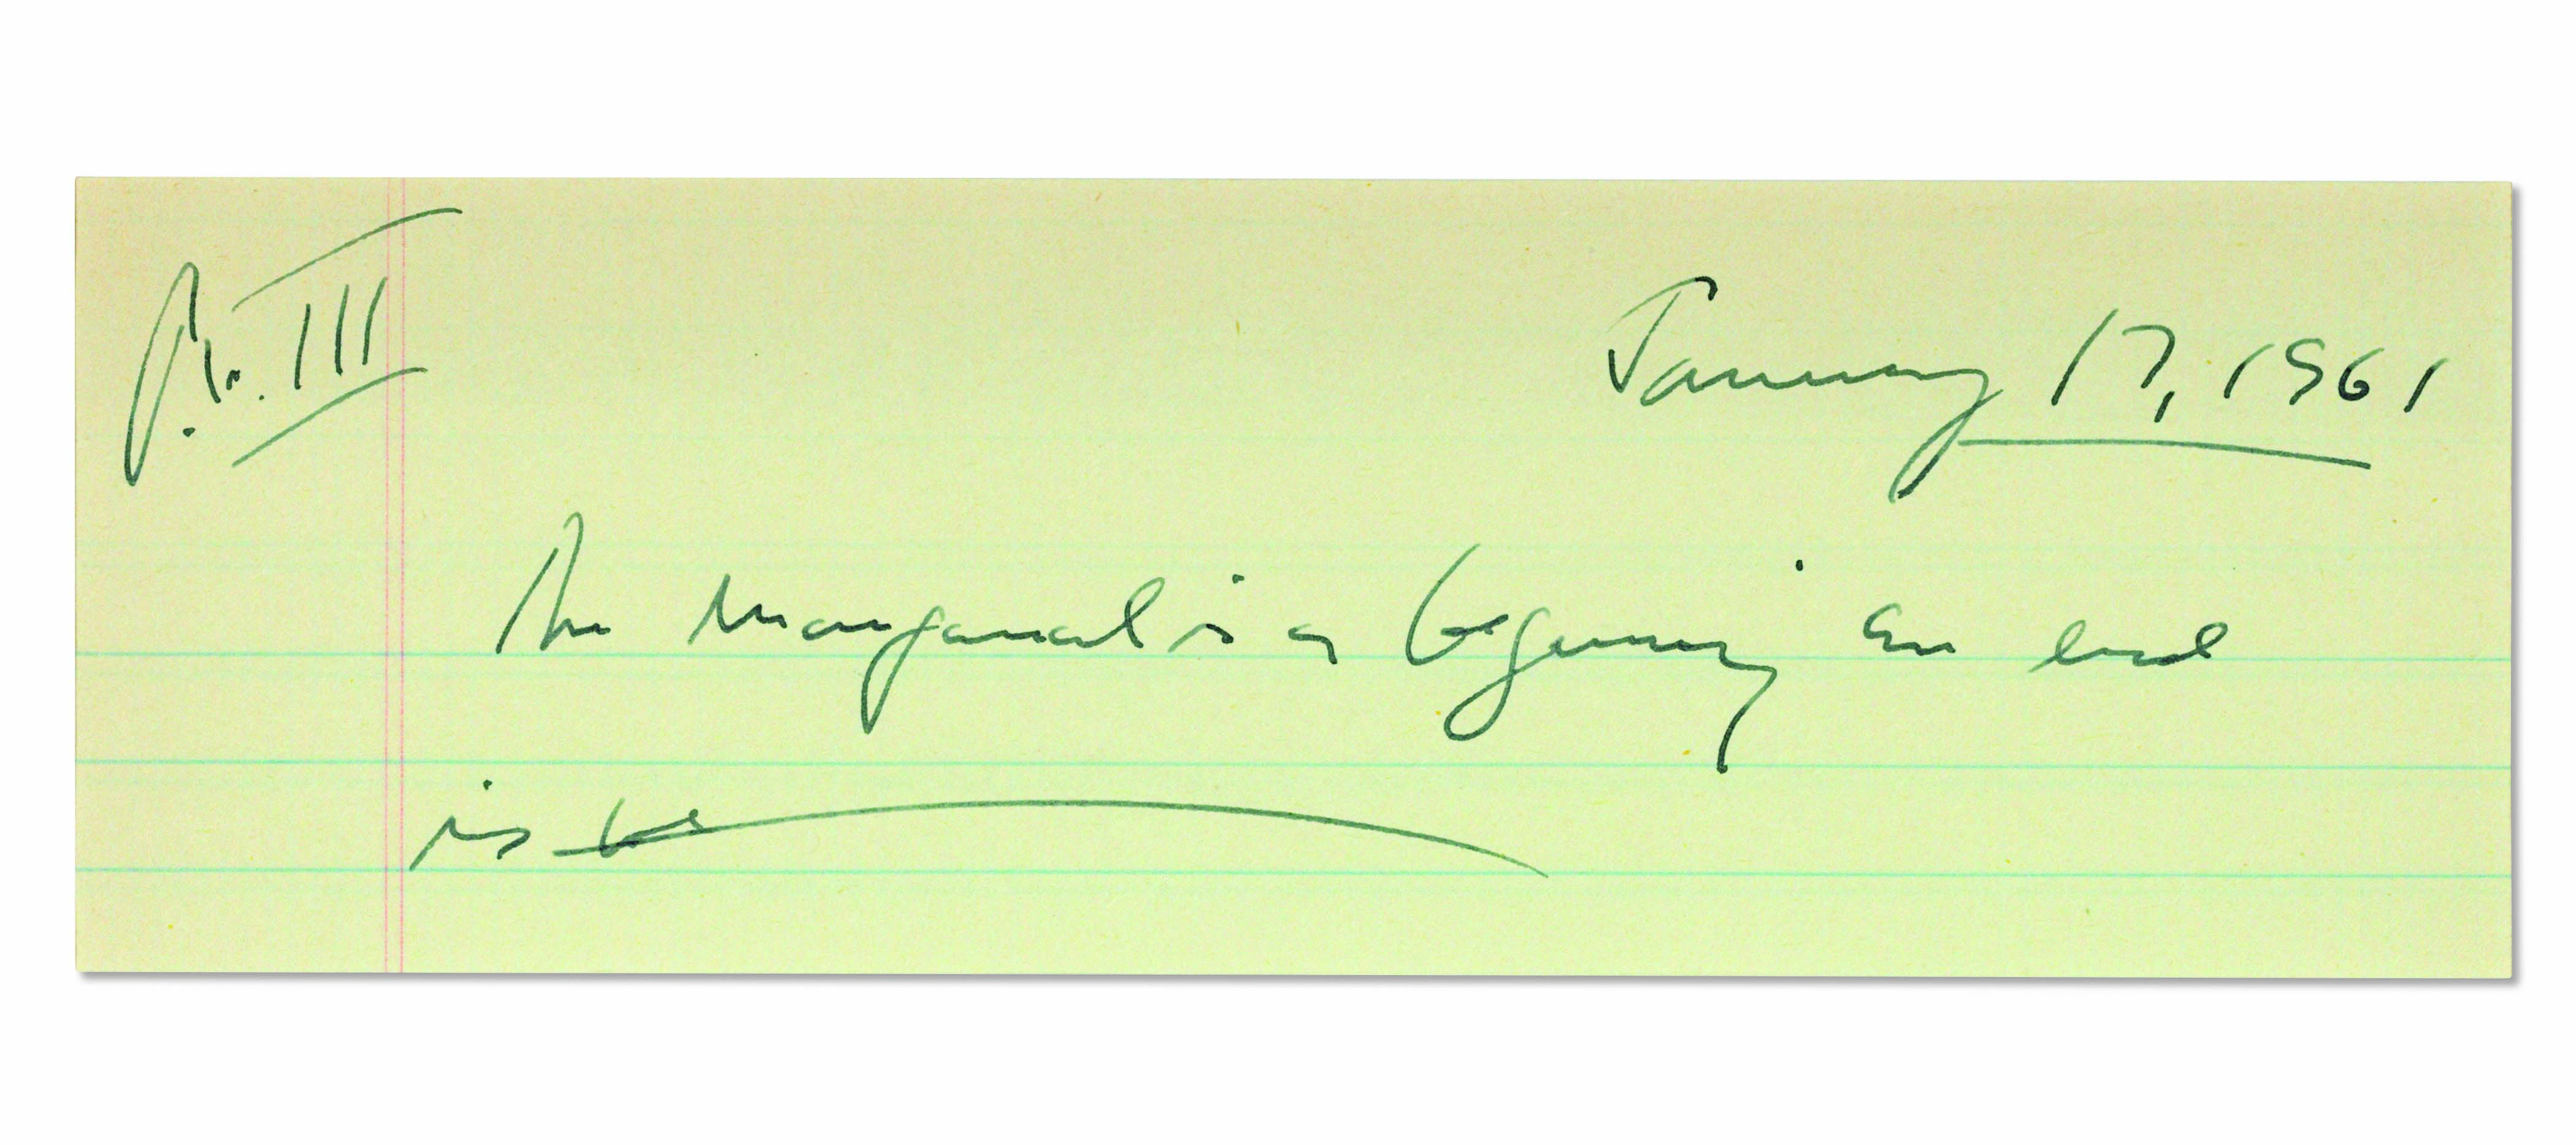 III
January 17, 1961
The Inaugural is a beginning an end
is